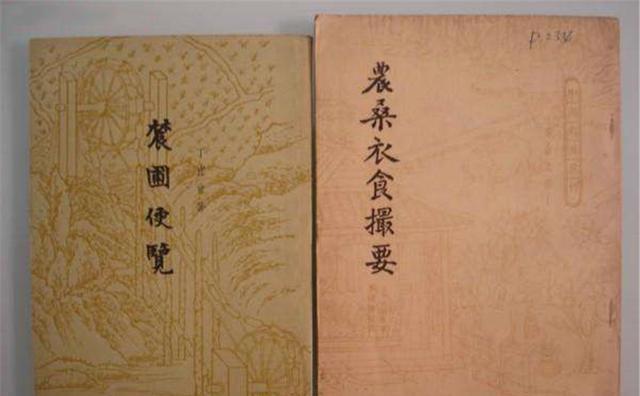 辳圃便覽
丁宜曾著
農桑衣食撮要